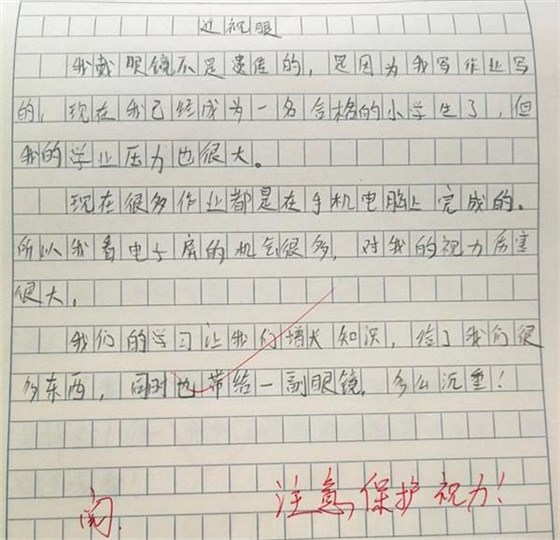 近视眼
我戴眼镜不是遗传的，是因为我写作业写
的，现在我已经成为一名合格的小学生了，但
我的学业压力也很大。
现在很多作业都是在手机电脑上完成的。
所以我看电子屏的机会很多，对我的视力厉害
很大，
我们的学习让我们增长知识，给了我们很
多东西，同时也带给一副眼镜，多么沉重！
阅.
注意保护视力！